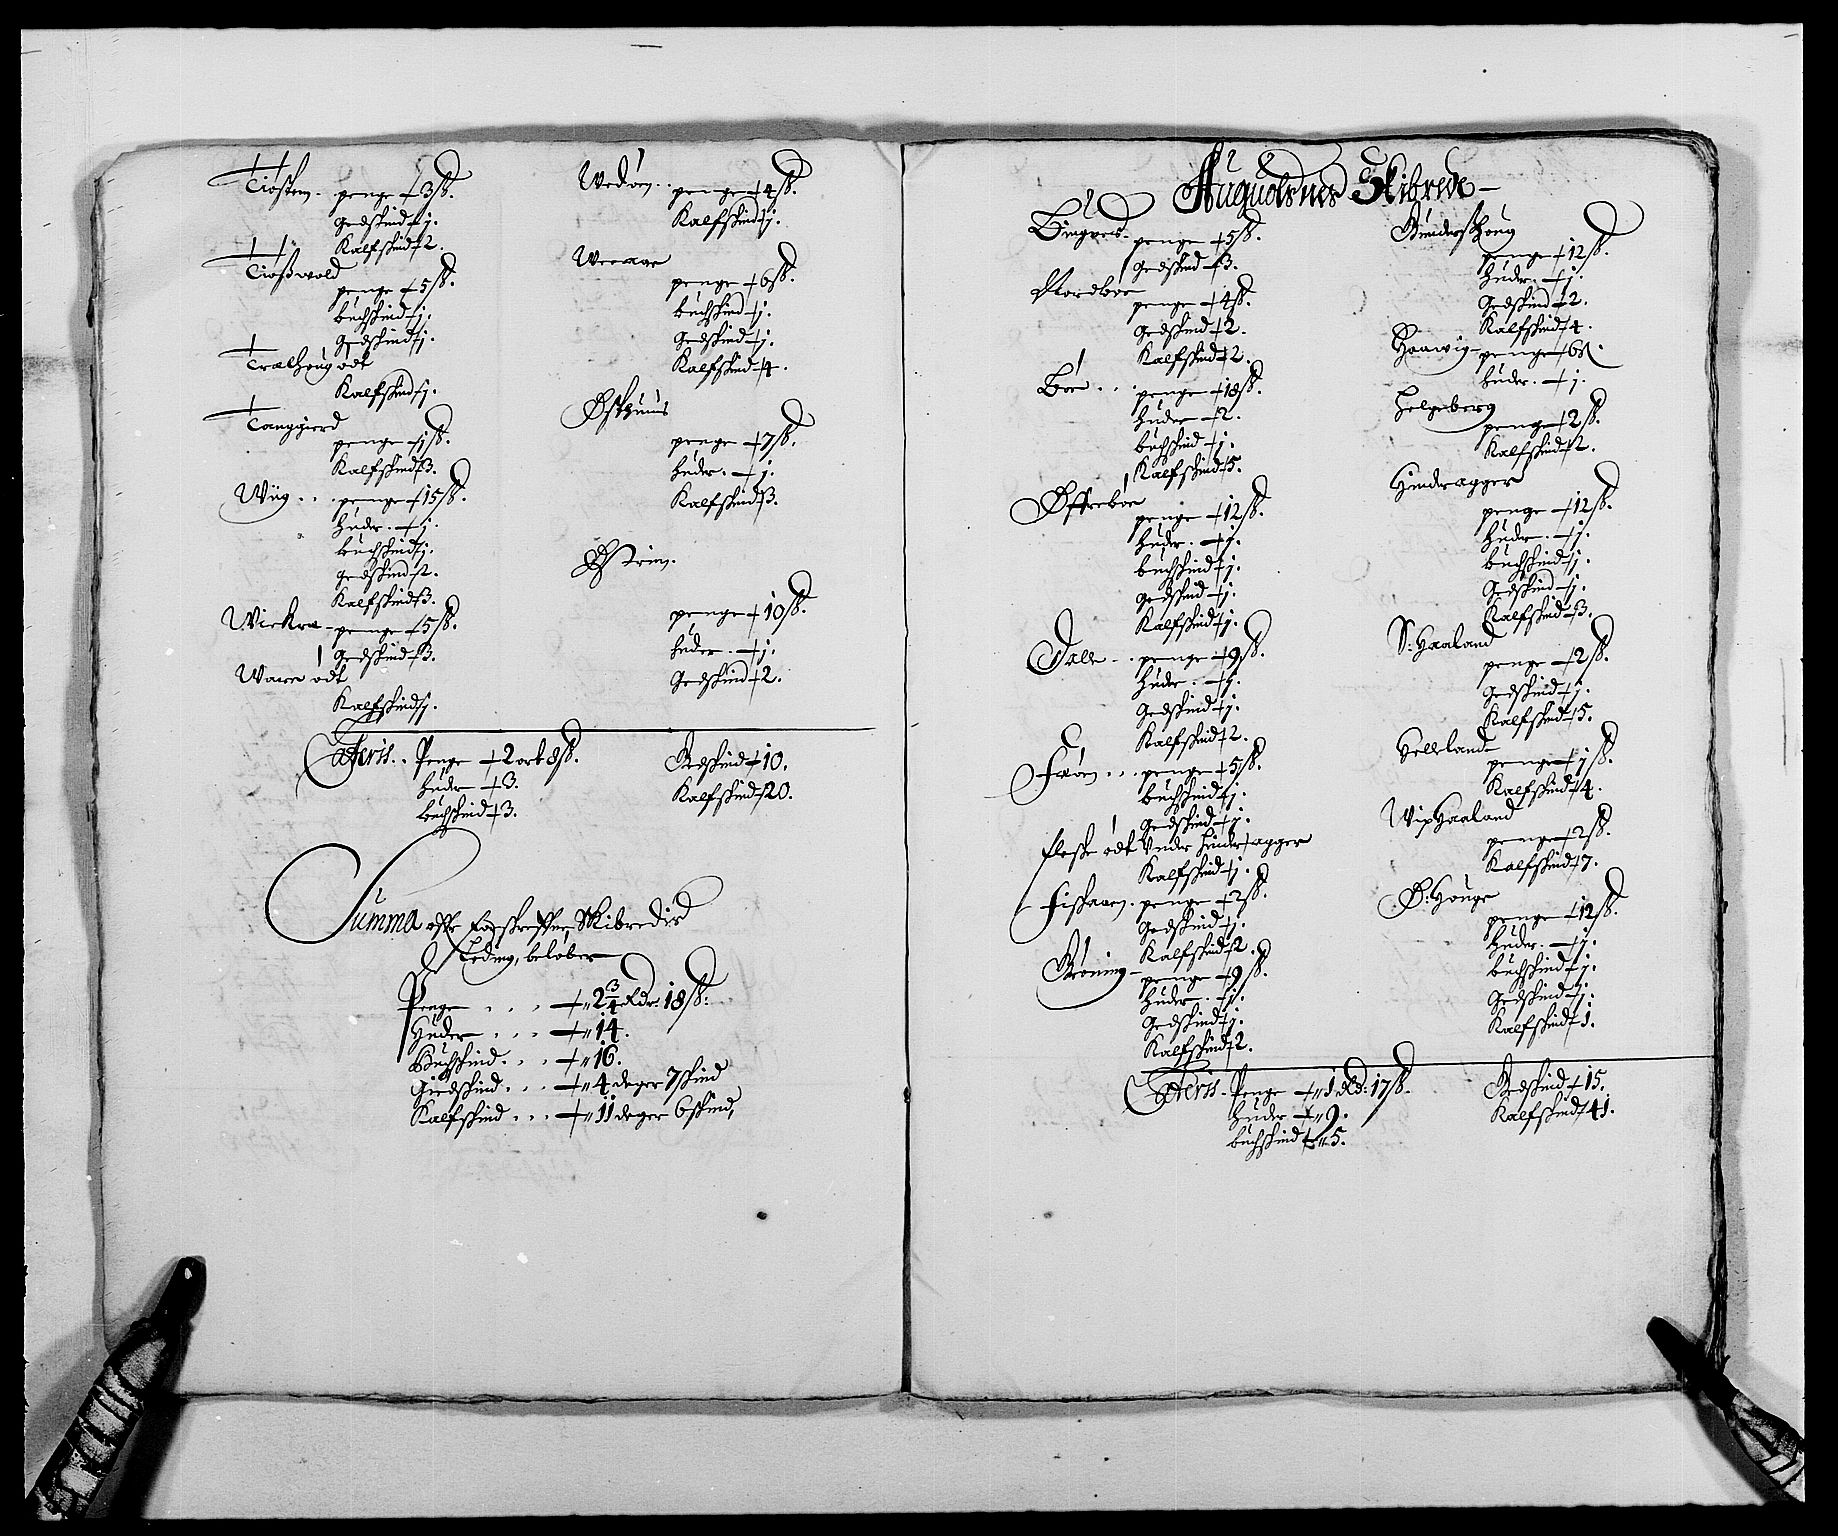 Tiøsten - penge + 3 ß.
Gedskind + j.
Kalfskind + 2.
Tioßwold
penge + 5 ß.
buchskind + j.
Gedskind + j.
Tralhoug ødt
Kalfskind + j.
Tanggierd
penge + j ß.
Kalfskind + 3.
Wiig . . . penge + 15 ß.
huder. + j.
buchskind + j.
Gedskind + 2.
Kalfskind + 3.
Wickra - penge + 5 ß.
Gedskind + 3.
Ware ødt
Kalfskind + j.
Wedøen . . penge + 4 ß.
Kalfskind + j.
Weraae
penge + 6 ß.
buchskind + j.
Gedskind + j.
Kalfskind + 4.
Østhuus
penge + 7 ß.
huder. + j.
Kalfskind + 3.
Østrim.
penge + 10 ß.
huder. + j.
Gedskind + 2.
Lateris . . Penge + 2 ort 8 ß.
huder + 3.
buchskind + 3.
Gedskind + 10.
Kalfskind + 20.
Summa aff forskrefne Skibredis
Leding, beløber
Penge . . . + 2 3/4 Rdr: 18 ß:
Huder . . . + 14.
Buchskind . . + 16.
Giedskind . . . + 4 deger 7 skind
Kalfskind . . . + 11 deger 6 skind,
Auguolsnes Skibrede -
Bingved - penge + 5 ß.
Gedskind + 3.
Nordboe
penge + 4 ß.
Gedskind + 2.
Kalfskind + 2.
Bøe . . . penge + 18 ß.
huder + 2.
buchskind + j.
Kalfskind + 5.
Øffreboe
penge + 12 ß.
huder. + j.
buchskind + j.
Gedskind + j.
Kalfskind + j.
Dalle . . penge + 9 ß.
huder. + j.
Gedskind + j.
Kalfskind + 2.
Føøen . . . penge + 5 ß.
buchskind + j.
Gedskind + j.
Fleske ødt Under Hinderagger
Kalfskind + j.
Fiskaaen. penge + 2 ß.
Gedskind + j.
Kalfskind + 2.
Grøning - penge + 9 ß.
huder. + j.
Gedskind + j.
Kalfskind + 2.
Gundershoug
penge + 12 ß.
huder. + j.
Gedskind + 2.
Kalfskind + 4.
Haawig - penge + 6 ß.
huder. + j.
Helgeberg
penge + 2 ß.
Kalfskind + 2.
Hinderagger
penge + 12 ß.
huder. + j.
buchskind + j.
Gedskind + j.
Kalfskind + 3.
S: Haaland
penge + 2 ß.
Gedskind + j.
Kalfskind + 5.
Helleland
penge + j ß.
Kalfskind + 4.
Wix Haaland
penge + 2 ß.
Kalfskind + 7.
Ø: Houge
penge + 12 ß.
huder. + j.
buchskind + j.
Gedskind + j.
Kalfskind + 1.
Lateris. Penge + 1 Rd: 17 ß.
Huder + 9.
buchskind + 5.
Gedskind + 15.
Kalfskind + 41.